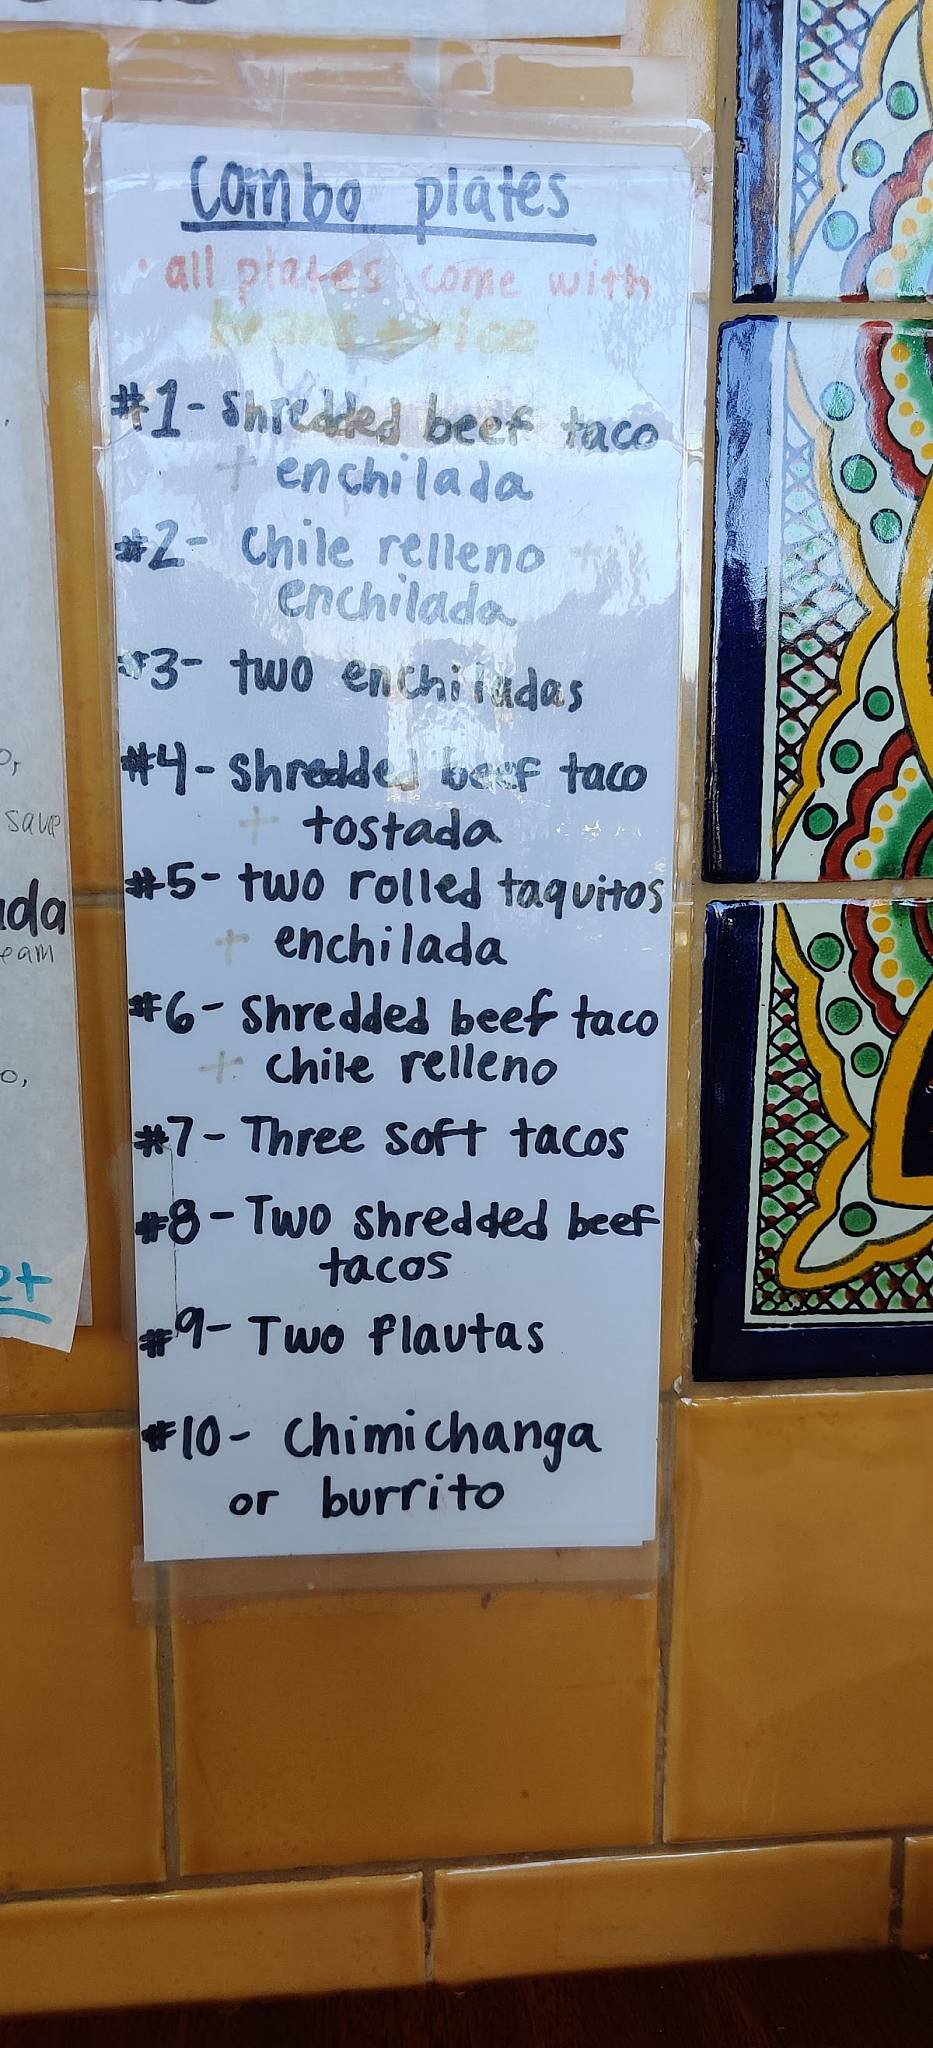 Combo plates
• all plates come with
beans + rice
#1- shredded beef taco
+ enchilada
#2- Chile relleno
enchilada
#3- two enchiladas
#4- shredded beef taco
+ tostada
#5- two rolled taquitos
+ enchilada
#6- shredded beef taco
+ chile relleno
#7- Three soft tacos
#8- Two shredded beef
tacos
#9- Two flautas
#10- Chimichanga
or burrito